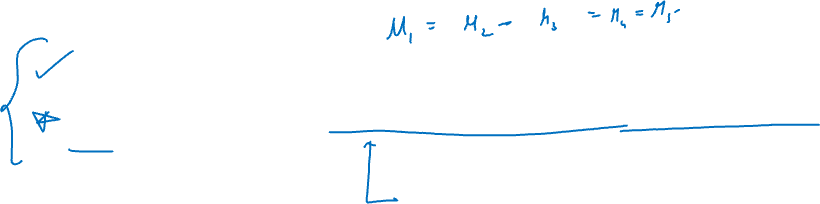 M₁ = M₂ = M₃ = M₄ = M₅